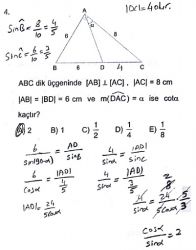 4.
|DC|=4 br.
sinB̂ = 8/10 = 4/5
sinĈ = 6/10 = 3/5
A
α
8
6
B 6 D 4 C
ABC dik üçgeninde [AB] ⊥ [AC], |AC| = 8 cm
|AB| = |BD| = 6 cm ve m(DAC) = α ise cotα
kaçtır?
A) 2 B) 1 C) 1/2 D) 1/4 E) 1/8
6/sin(90-α) = AD/sinB 4/sinα = |AD|/sinC
6/cosα = |AD|/(4/5) 4/sinα = |AD|/(3/5)
|AD| = 24/5cosα 4/sinα = 24/5cosα · 5/3
cosα/sinα = 2